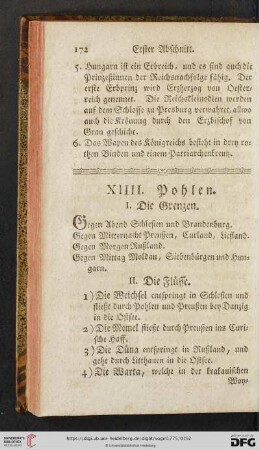 172 Erster Abschnitt.
5. Hungarn ist ein Erbreich, und es sind auch die
Prinzeßinnen der Reichsnachfolge fähig. Der
erste Erbprinz wird Erzherzog von Oester-
reich genennet. Die Reichskleinodien werden
auf dem Schlosse zu Presburg verwahret, allwo
auch die Krönung durch den Erzbischof von
Gran geschieht.
6. Das Wapen des Königreichs besteht in drey ro-
then Binden und einem Patriarchenkreuz.
XIIII. Pohlen.
I. Die Grenzen.
Gegen Abend Schlesien und Brandenburg.
Gegen Mitternacht Preußen, Curland, Liefland.
Gegen Morgen Rußland.
Gegen Mittag Moldau, Siebenbürgen und Hun-
garn.
II. Die Flüsse.
1) Die Weichsel entspringt in Schlesien und
fließt durch Pohlen und Preussen bey Danzig
in die Ostsee.
2) Die Memel fließt durch Preussen ins Curi-
sche Haff.
3) Die Düna entspringt in Rußland, und
gehe durch Litthauen in die Ostsee.
4) Die Warta, welche in der krakauischen
Woy-
UNIVERSITÄTS-BIBLIOTHEK HEIDELBERG
© Universitätsbibliothek Heidelberg
DFG